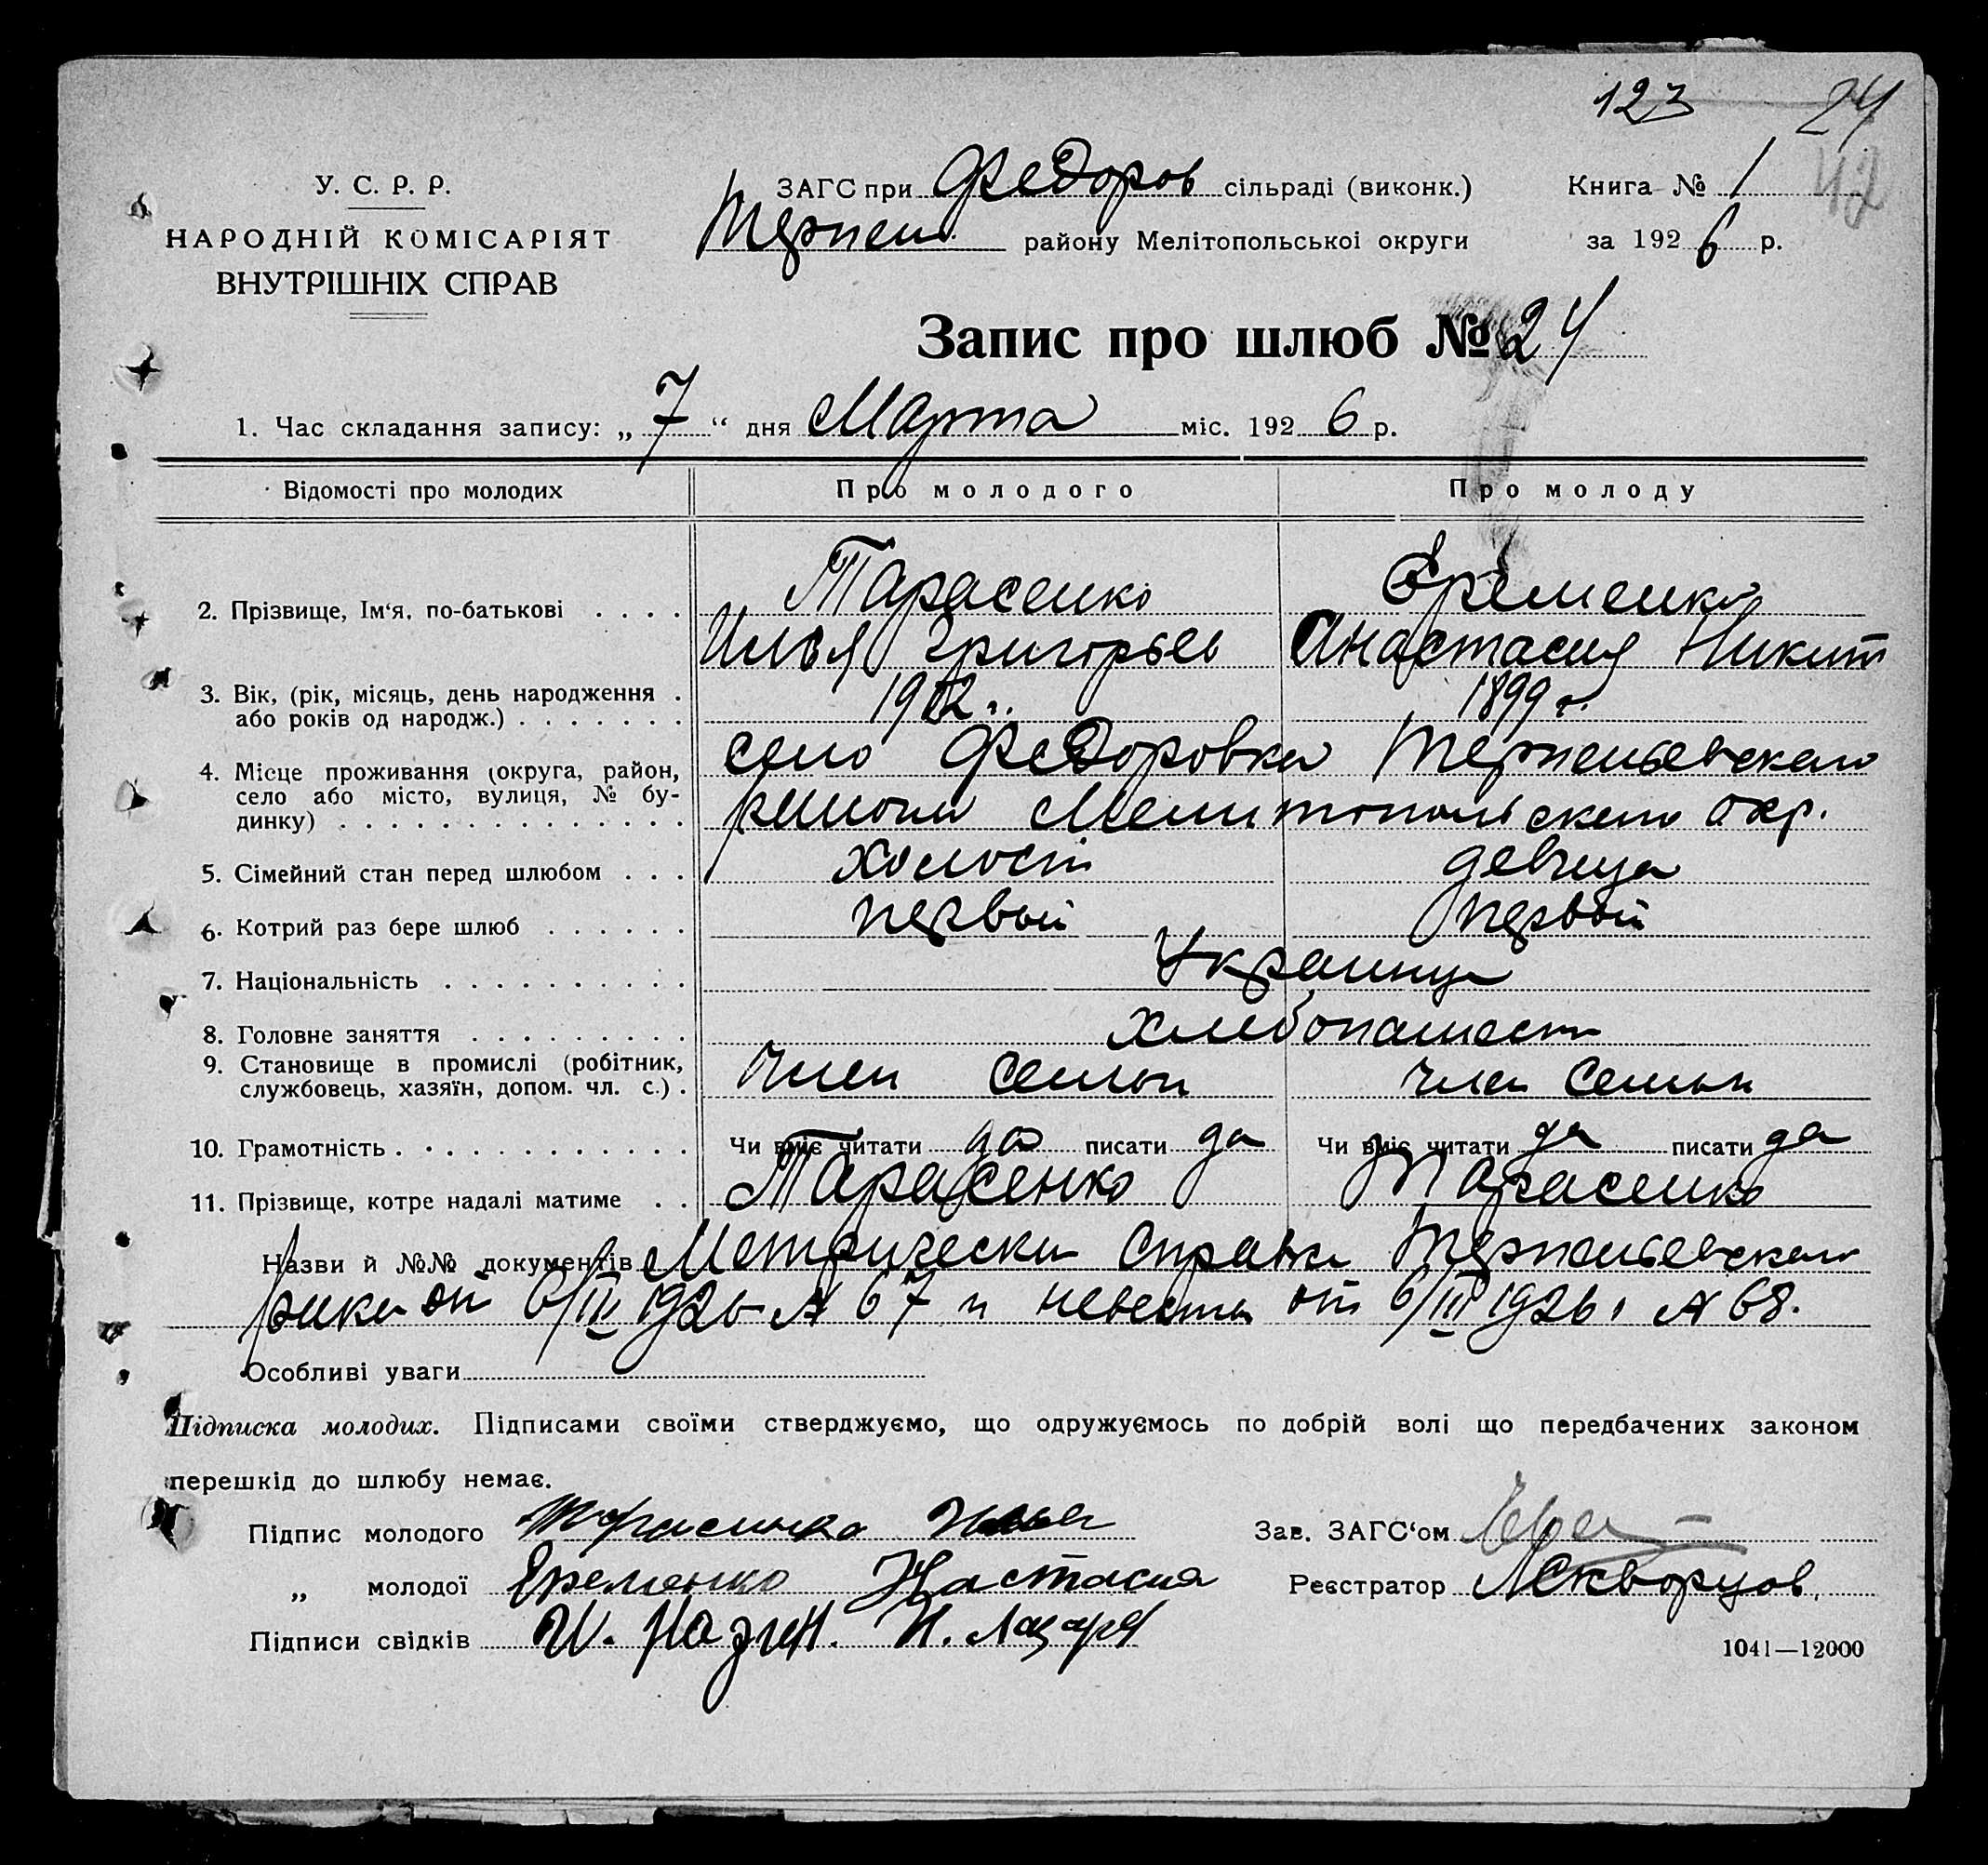 123 24
42
У. С. Р. Р.
НАРОДНІЙ КОМІСАРІЯТ
ВНУТРІШНІХ СПРАВ
ЗАГС при Федоров сільраді (виконк.) Книга № 1
Терпен району Мелітопольської округи за 1926 р.
Запис про шлюб № 24
1. Час складання запису: „ 7 “ дня Марта міс. 1926 р.
Відомості про молодих Про молодого Про молоду
2. Прізвище, Ім‘я, по-батькові . . . . Тарасенко Еременко
Илья Григорьев Анастасия Никит
3. Вік, (рік, місяць, день народження . або років од народж.) . . . . . . . 1902 г. 1899 г.
4. Місце проживання (округа, район, село Федоровка Терпеньевского
село або місто, вулиця, № бу-
динку) . . . . . . . . . . . . . . района Мелитопольского окр.
5. Сімейний стан перед шлюбом . . . холост девица
6. Котрий раз бере шлюб . . . . . . первый первый
7. Національність . . . . . . . . . . Украинцы
8. Головне заняття . . . . . . . . . хлебопашест
9. Становище в промислі (робітник,
службовець, хазяїн, допом. чл. с.) . Член семьи член семьи
10. Грамотність . . . . . . . . . . . Чи вміє читати да писати да Чи вміє читати да писати да
11. Прізвище, котре надалі матиме . . Тарасенко Тарасенко
Назви й №№ документів Метрически справки Терпеньевского
рика от 6/III 1926 № 67 и невесты от 6/III 1926 № 68.
Особливі уваги
Підписка молодих. Підписами своїми стверджуємо, що одружуємось по добрій волі що передбачених законом
перешкід до шлюбу немає.
Підпис молодого Тарасинко Илья Зав. ЗАГС‘ом
„ молодої Еременко Настасия Реєстратор Скворцов
Підписи свідків И. Назин. И. Лазаря
1041—12000